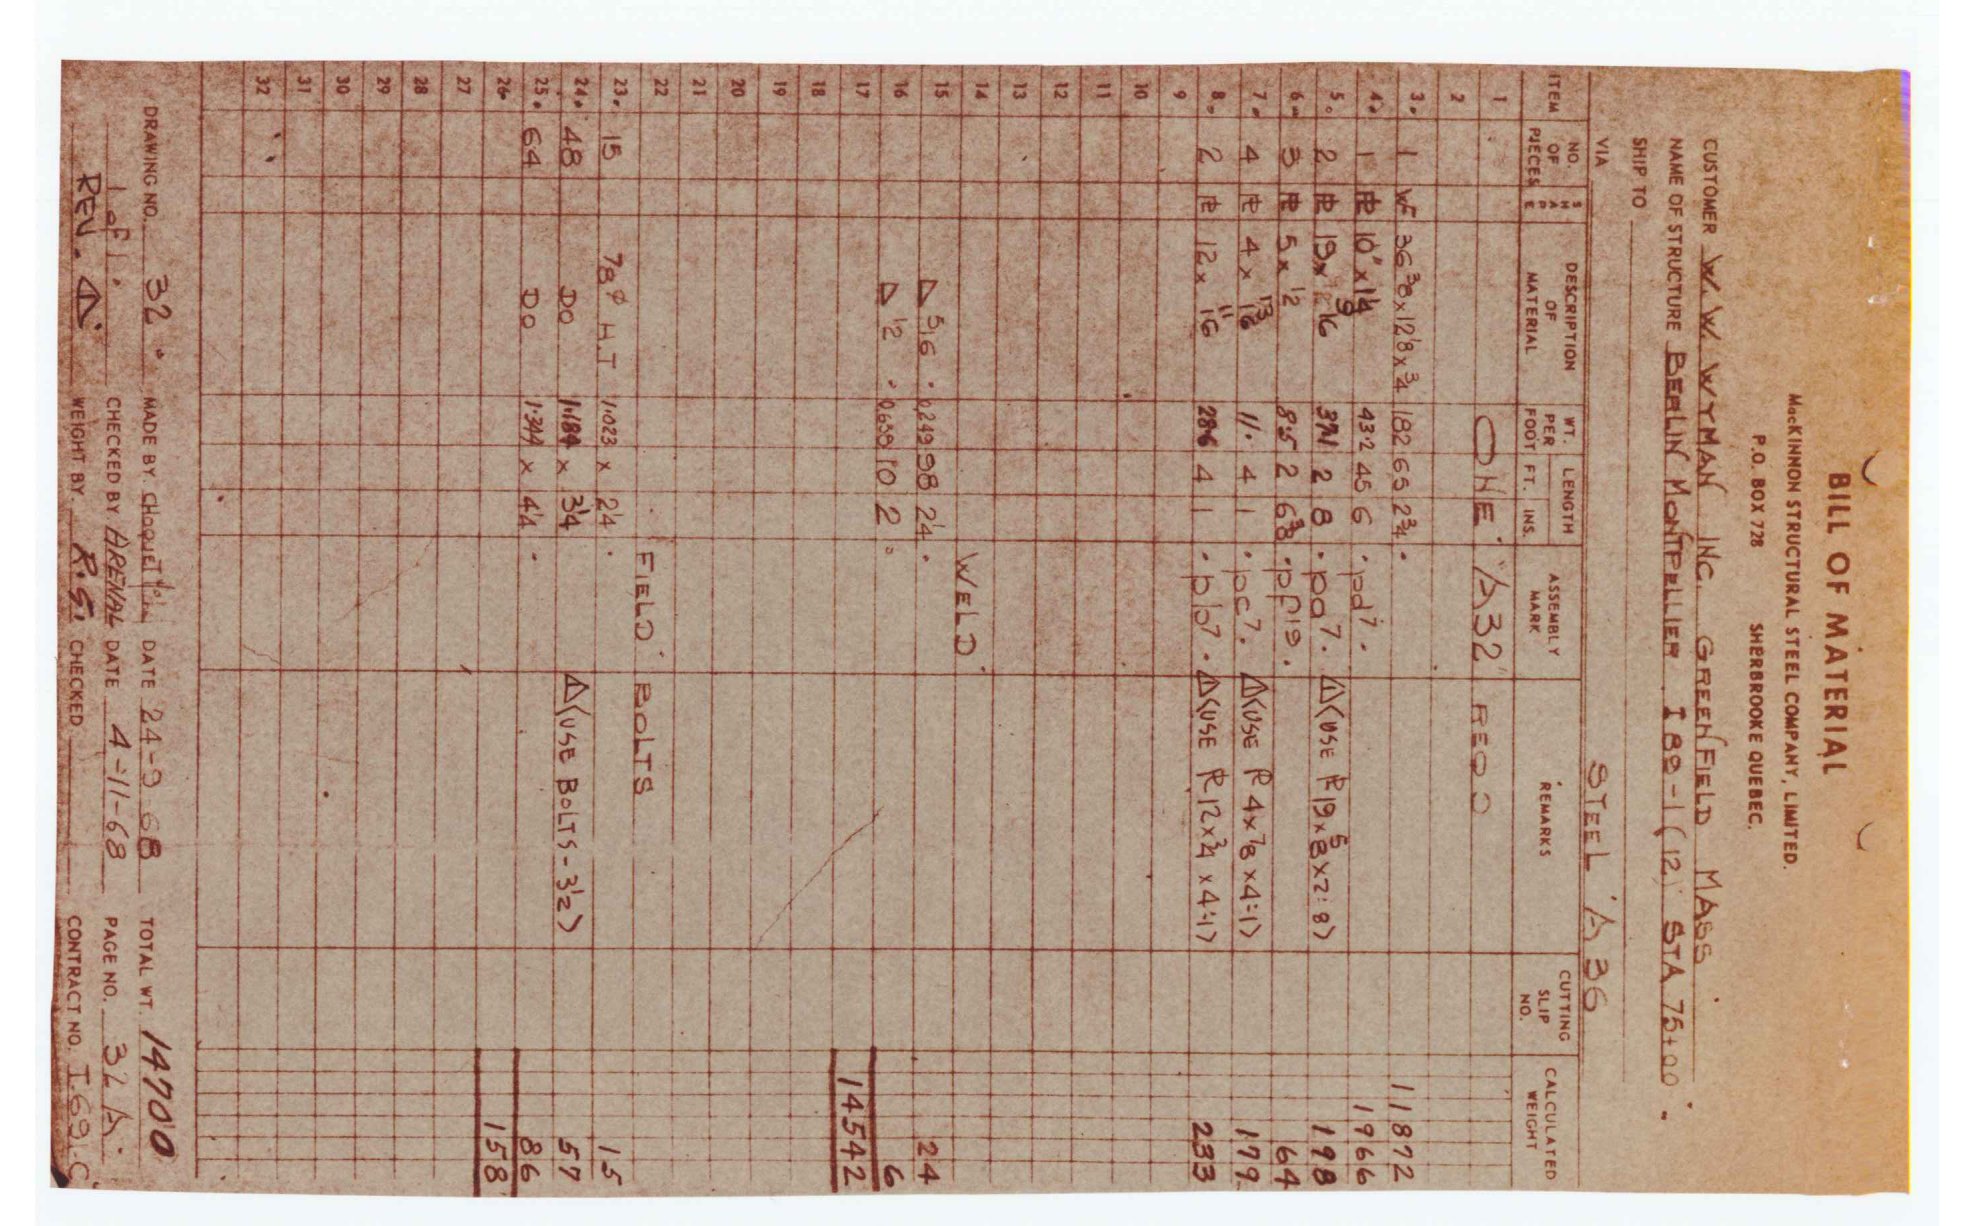 BILL OF MATERIAL
MacKINNON STRUCTURAL STEEL COMPANY, LIMITED.
P.O. BOX 728 SHERBROOKE QUEBEC.
CUSTOMER W. W. WYMAN INC. GREENFIELD MASS.
NAME OF STRUCTURE BERLIN MONTPELLIER I 89-1 (12) STA 75+00.
SHIP TO
VIA STEEL A36
ITEM NO. OF PIECES SHAPE DESCRIPTION OF MATERIAL WT. PER FOOT LENGTH FT. INS. ASSEMBLY MARK REMARKS CUTTING SLIP NO. CALCULATED WEIGHT
1 ONE "A32" REQD
2
3. 1 WF 36 3/8 x 12 1/8 x 3/4 182 65 2 3/4. 11872
4. 1 PL 10" x 1 1/4 432 45 6 . pd7. 1966
5. 2 PL 19 x 9/16 371 2 8 . pa7. △(USE PL 19 x 5/8 x 2:8) 198
6. 3 PL 5 x 1/2 85 2 6 3/8 . pf19. 64
7. 4 PL 4 x 13/16 11. 4 1 . pc7. △(USE PL 4 x 7/8 x 4:1) 179
8. 2 PL 12 x 11/16 286 4 1 . pb7. △(USE PL 12 x 3/4 x 4:1) 233
9
10
11
12
13
14 WELD
15 △ 5/16 . 0249 98 2 1/4. 24
16 △ 1/2 . 0639 10 2. 6
17 14542
18
19
20
21
22 FIELD BOLTS
23. 15 7/8 φ H.T 1.023 x 2 1/4. 15
24. 48 DO 1.184 x 3 1/4 △(USE BOLTS - 3 1/2) 57
25. 64 DO 1.344 x 4 1/4. 86
26. 158
27
28
29
30
31
32
DRAWING NO. 32. MADE BY. DATE 24-9-68 TOTAL WT. 14700
1 of 1. CHECKED BY ARENAL DATE 4-11-68 PAGE NO. 32 A.
REV. △. WEIGHT BY. R.G. CHECKED CONTRACT NO. I-69-C